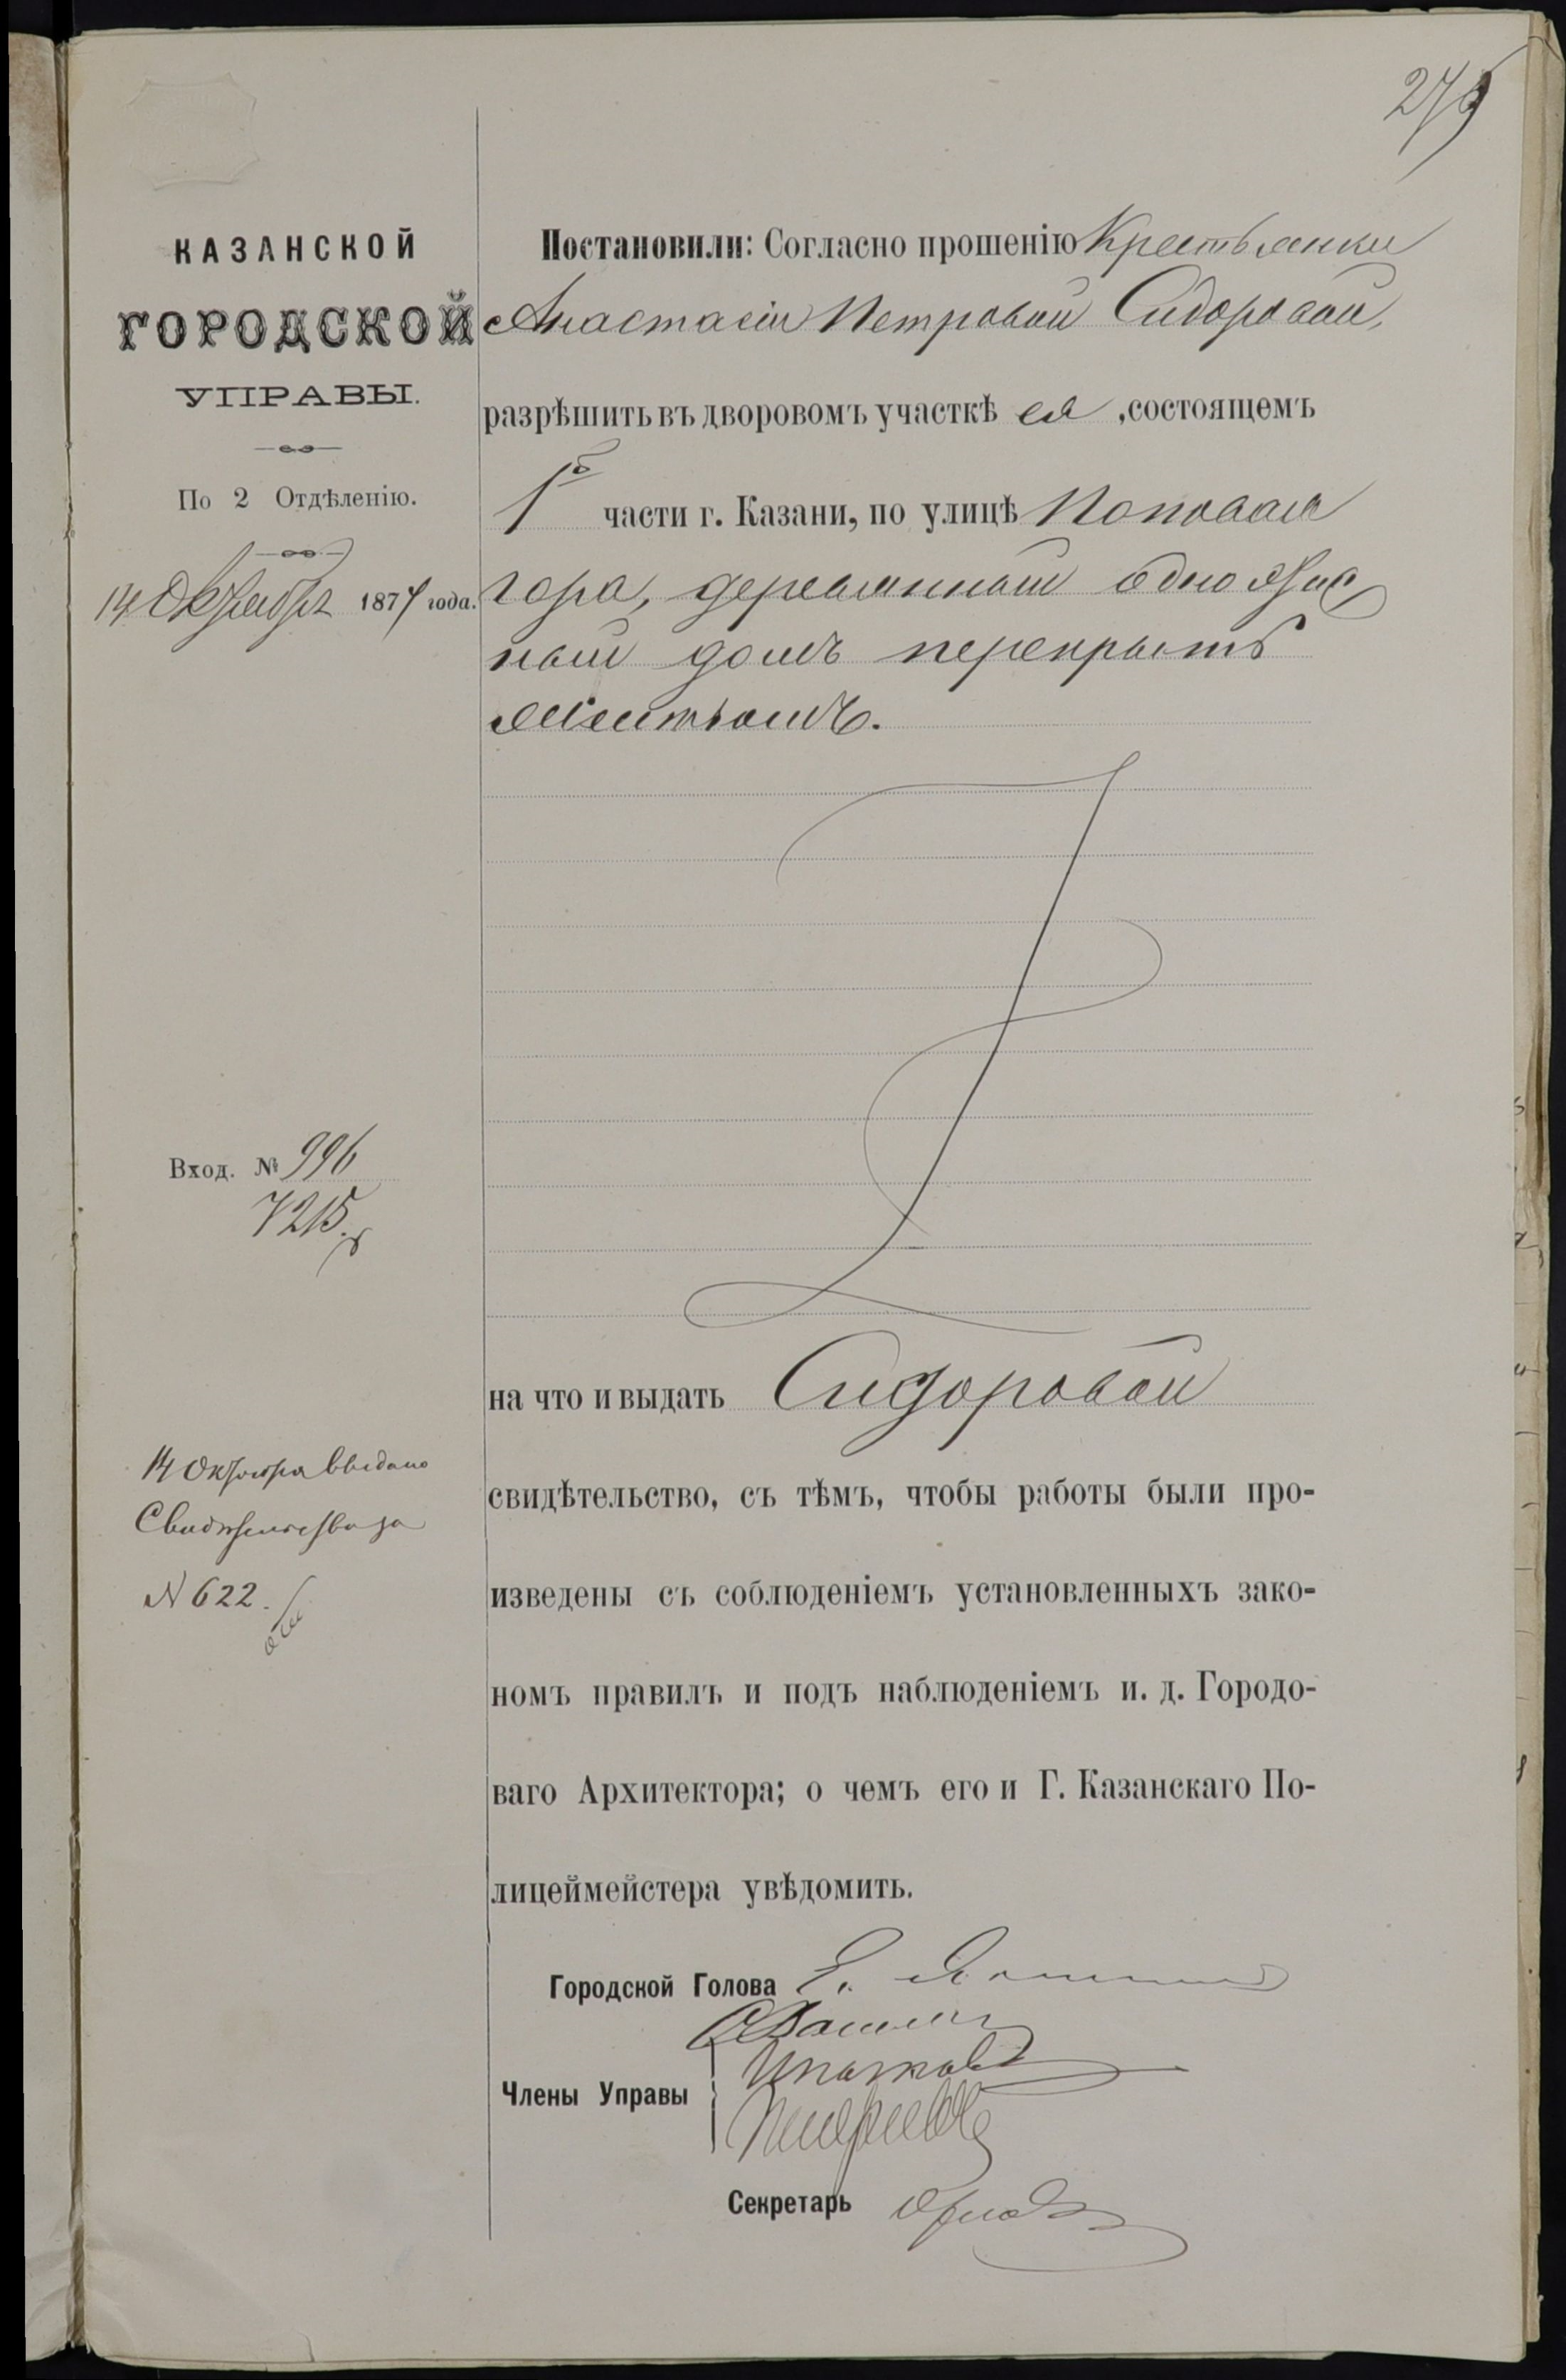 275
КАЗАНСКОЙ
ГОРОДСКОЙ
УПРАВЫ.
По 2 Отдѣленію.
14 Октября 1877 года.
Вход. № 996
7215.
14 Октября выдано
Свидѣтельство за
N 622.
Постановили: Согласно прошенію Крестьянки
Анастасіи Петровой Сидоровой,
разрѣшить въ дворовомъ участкѣ ея, состоящемъ
1й части г. Казани, по улицѣ Поповая
гора, деревянный одноэтаж
ный домъ перекрыть
желѣзомъ.
на что и выдать Сидоровой
свидѣтельство, съ тѣмъ, чтобы работы были про-
изведены съ соблюденіемъ установленныхъ зако-
номъ правилъ и подъ наблюденіемъ и. д. Городо-
ваго Архитектора; о чемъ его и Г. Казанскаго По-
лицеймейстера увѣдомить.
Городской Голова
Члены Управы
Секретарь